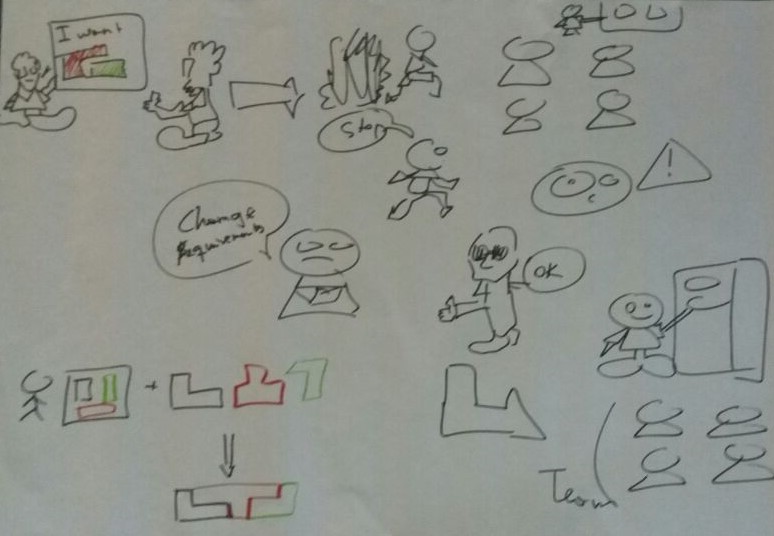 I want
Stop
!
Change
Requirements
OK
Team